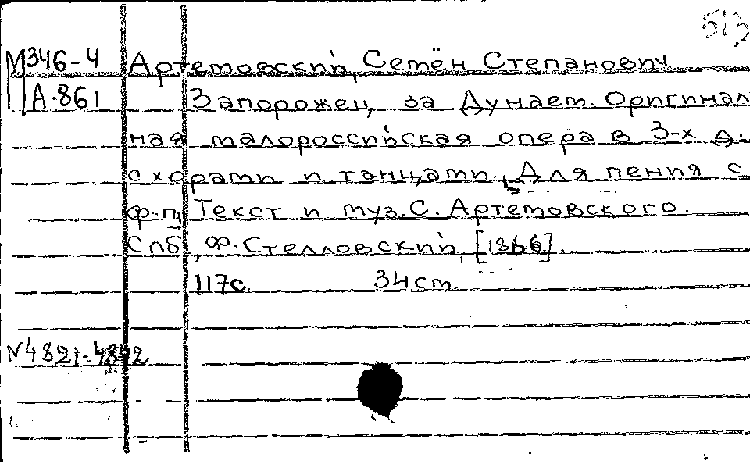 М346-4 Артемовский, Семён Степанович
А-861 Запорожец за Дунаем. Оригинал
ная малороссийская опера в 3-х д.
с хорами и танцами. Для пения с
ф.-п. Текст и муз. С. Артемовского.
Спб, Ф. Стелловский, [1866].
117с. 34cm.
N4821-4842